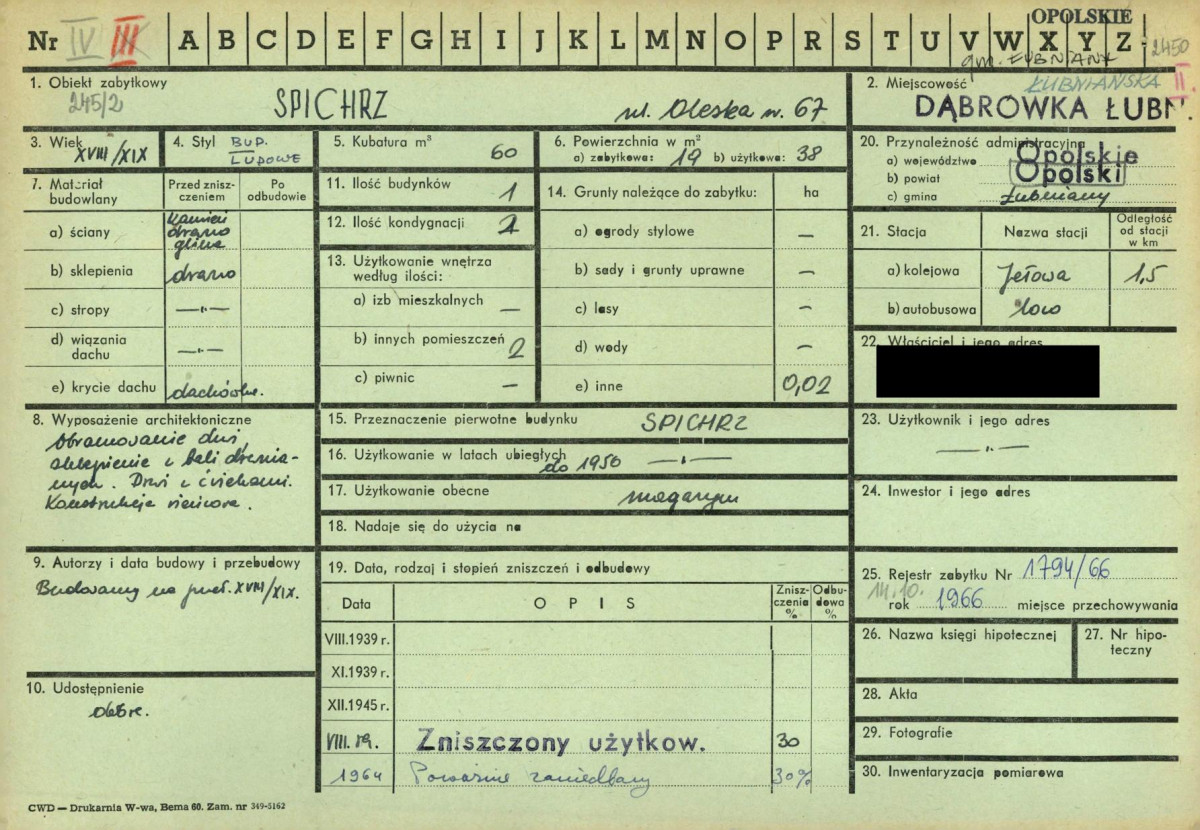 OPOLSKIE
Nr IV III A B C D E F G H I J K L M N O P R S T U V W X Y Z 2450
gm. ŁUBNIANY
1. Obiekt zabytkowy
245/2
SPICHRZ ul. Oleska nr. 67
2. Miejscowość ŁUBNIAŃSKA II.
DĄBRÓWKA ŁUBN.
3. Wiek XVIII/XIX
4. Styl BUD. LUDOWE
5. Kubatura m³ 60
6. Powierzchnia w m²
a) zabytkowa: 19 b) użytkowa: 38
20. Przynależność administracyjna
a) województwo Opolskie
b) powiat Opolski
c) gmina Łubniany
7. Materiał budowlany
Przed zniszczeniem
Po odbudowie
a) ściany kamień drewno glina
b) sklepienia drewno
c) stropy —„—
d) wiązania dachu —„—
e) krycie dachu dachówka.
11. Ilość budynków 1
12. Ilość kondygnacji 2
13. Użytkowanie wnętrza według ilości:
a) izb mieszkalnych —
b) innych pomieszczeń 2
c) piwnic —
14. Grunty należące do zabytku: ha
a) ogrody stylowe —
b) sady i grunty uprawne —
c) lasy —
d) wody —
e) inne 0,02
21. Stacja Nazwa stacji Odległość od stacji w km
a) kolejowa Jełowa 1,5
b) autobusowa loco
22. Właściciel i jego adres
8. Wyposażenie architektoniczne
Obramowanie drzwi,
sklepienie z bali drewnia-
nych. Drzwi z ćwiekami.
Konstrukcja wieńcowa.
15. Przeznaczenie pierwotne budynku SPICHRZ
16. Użytkowanie w latach ubiegłych
do 1950 —„—
17. Użytkowanie obecne magazyn
18. Nadaje się do użycia na
23. Użytkownik i jego adres
—„—
24. Inwestor i jego adres
9. Autorzy i data budowy i przebudowy
Budowany na przeł. XVIII/XIX.
10. Udostępnienie
dobre.
19. Data, rodzaj i stopień zniszczeń i odbudowy
Data OPIS Zniszczenia % Odbudowa %
VIII.1939 r.
XI.1939 r.
XII.1945 r.
Zniszczony użytkow. 30
1964 Poważnie zaniedbany 30%
25. Rejestr zabytku Nr 1794/66
14.10.
rok 1966 miejsce przechowywania
26. Nazwa księgi hipotecznej
27. Nr hipoteczny
28. Akta
29. Fotografie
30. Inwentaryzacja pomiarowa
CWD — Drukarnia W-wa, Bema 60. Zam. nr 349-5162